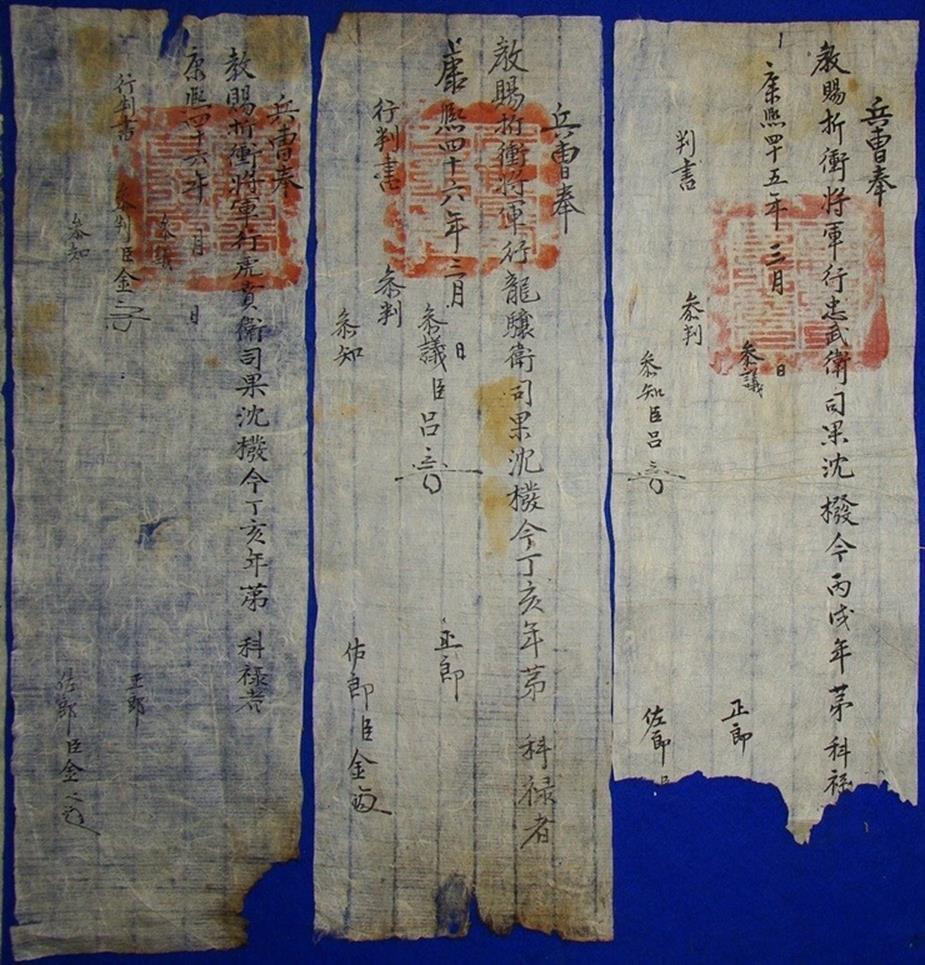 兵曹奉
教賜折衝將軍行忠武衛司果沈橃今丙戌年苐 科祿
康熙四十五年 三月 日
參議 正郎
判書 參判
參知臣呂 佐郎臣
兵曹奉
教賜折衝將軍行龍驤衛司果沈橃今丁亥年苐 科祿者
康熙四十六年 三月 日
參議臣呂 正郎
行判書 參判
參知 佐郎臣金
兵曹奉
教賜折衝將軍行虎賁衛司果沈橃今丁亥年苐 科祿者
康熙四十六年 月 日
參議 正郎
行判書 參判臣金
參知 佐郎臣金